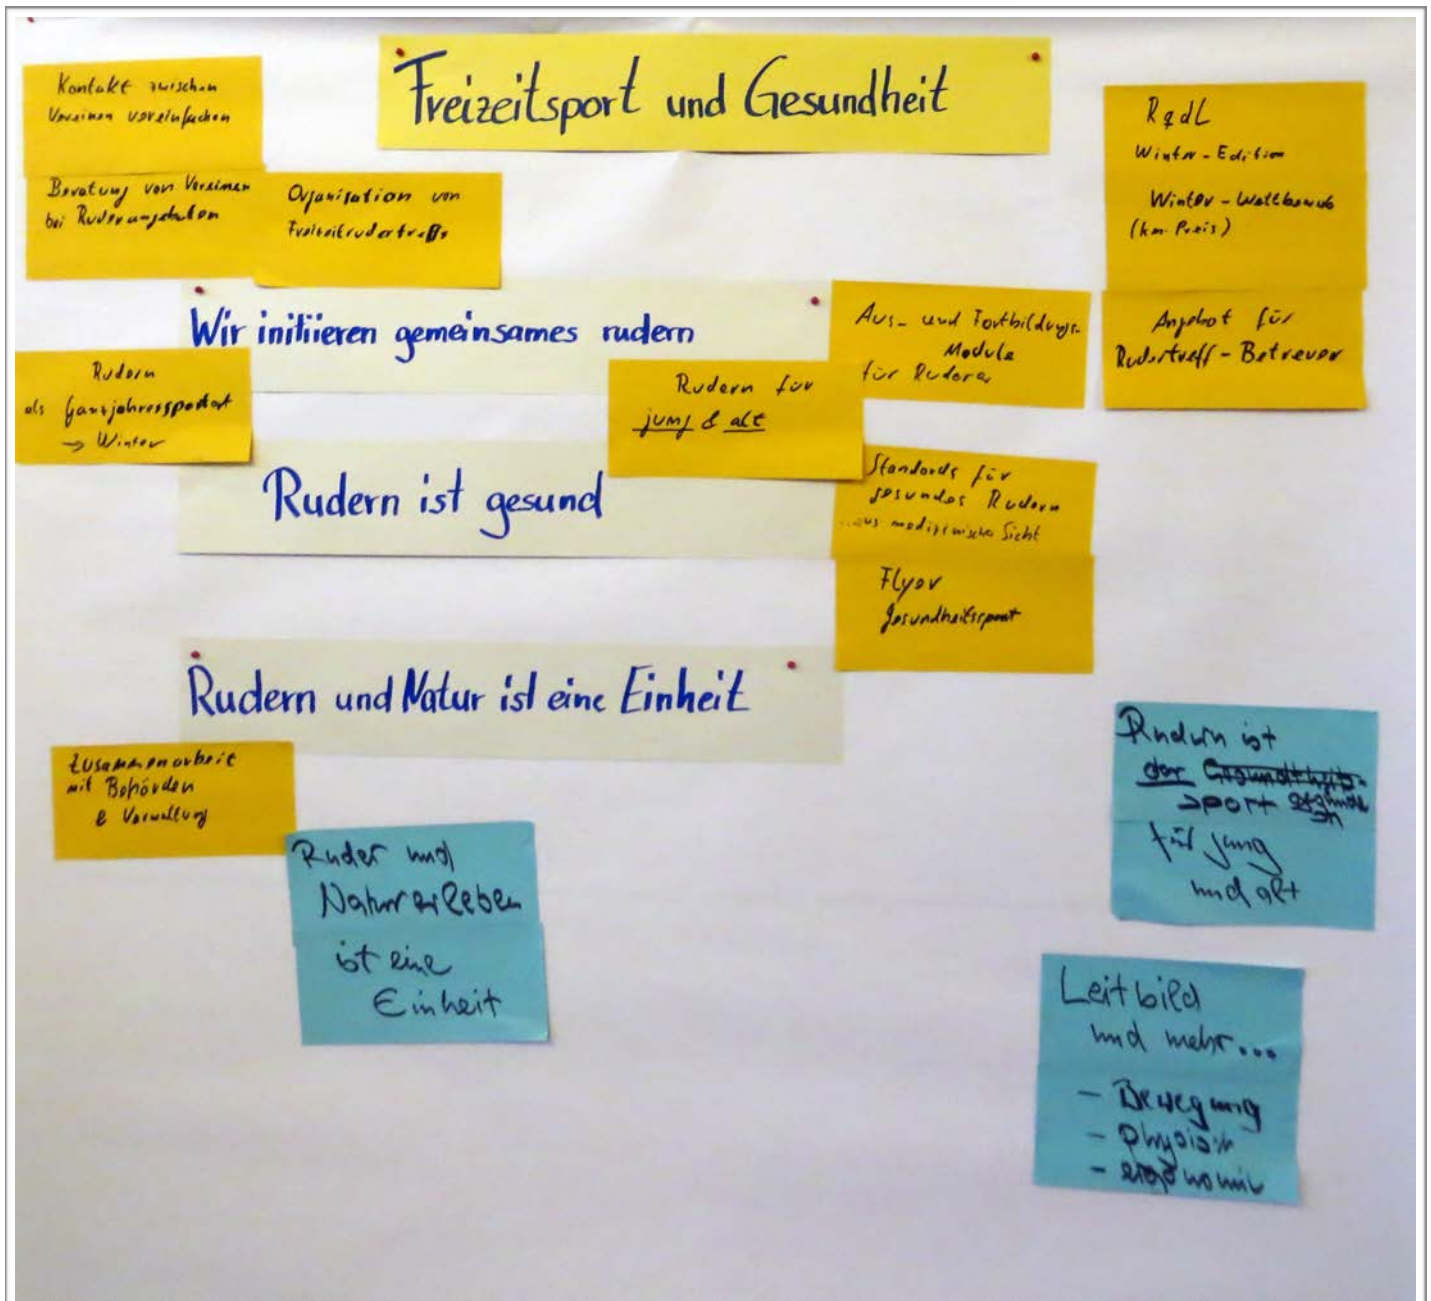 Freizeitsport und Gesundheit
Kontakt zwischen
Vereinen vereinfachen
Beratung von Vereinen
bei Ruderangeboten
Organisation von
Freizeitrudertreffs
RgdL
Winter-Edition
Winter-Wettbewerb
(km-Preis)
Angebot für
Rudertreff-Betreuer
Wir initiieren gemeinsames rudern
Aus- und Fortbildungs-
Module
für Ruderer
Rudern
als Ganzjahressportart
→ Winter
Rudern für
jung & alt
Rudern ist gesund
Standards für
gesundes Rudern
...aus medizinischer Sicht
Flyer
Gesundheitssport
Rudern und Natur ist eine Einheit
Zusammenarbeit
mit Behörden
& Verwaltung
Ruder und
Naturerleben
ist eine
Einheit
Rudern ist
der Gesundheits-
sport
für jung
und alt
Leitbild
und mehr...
- Bewegung
- physisch
- ergonomie